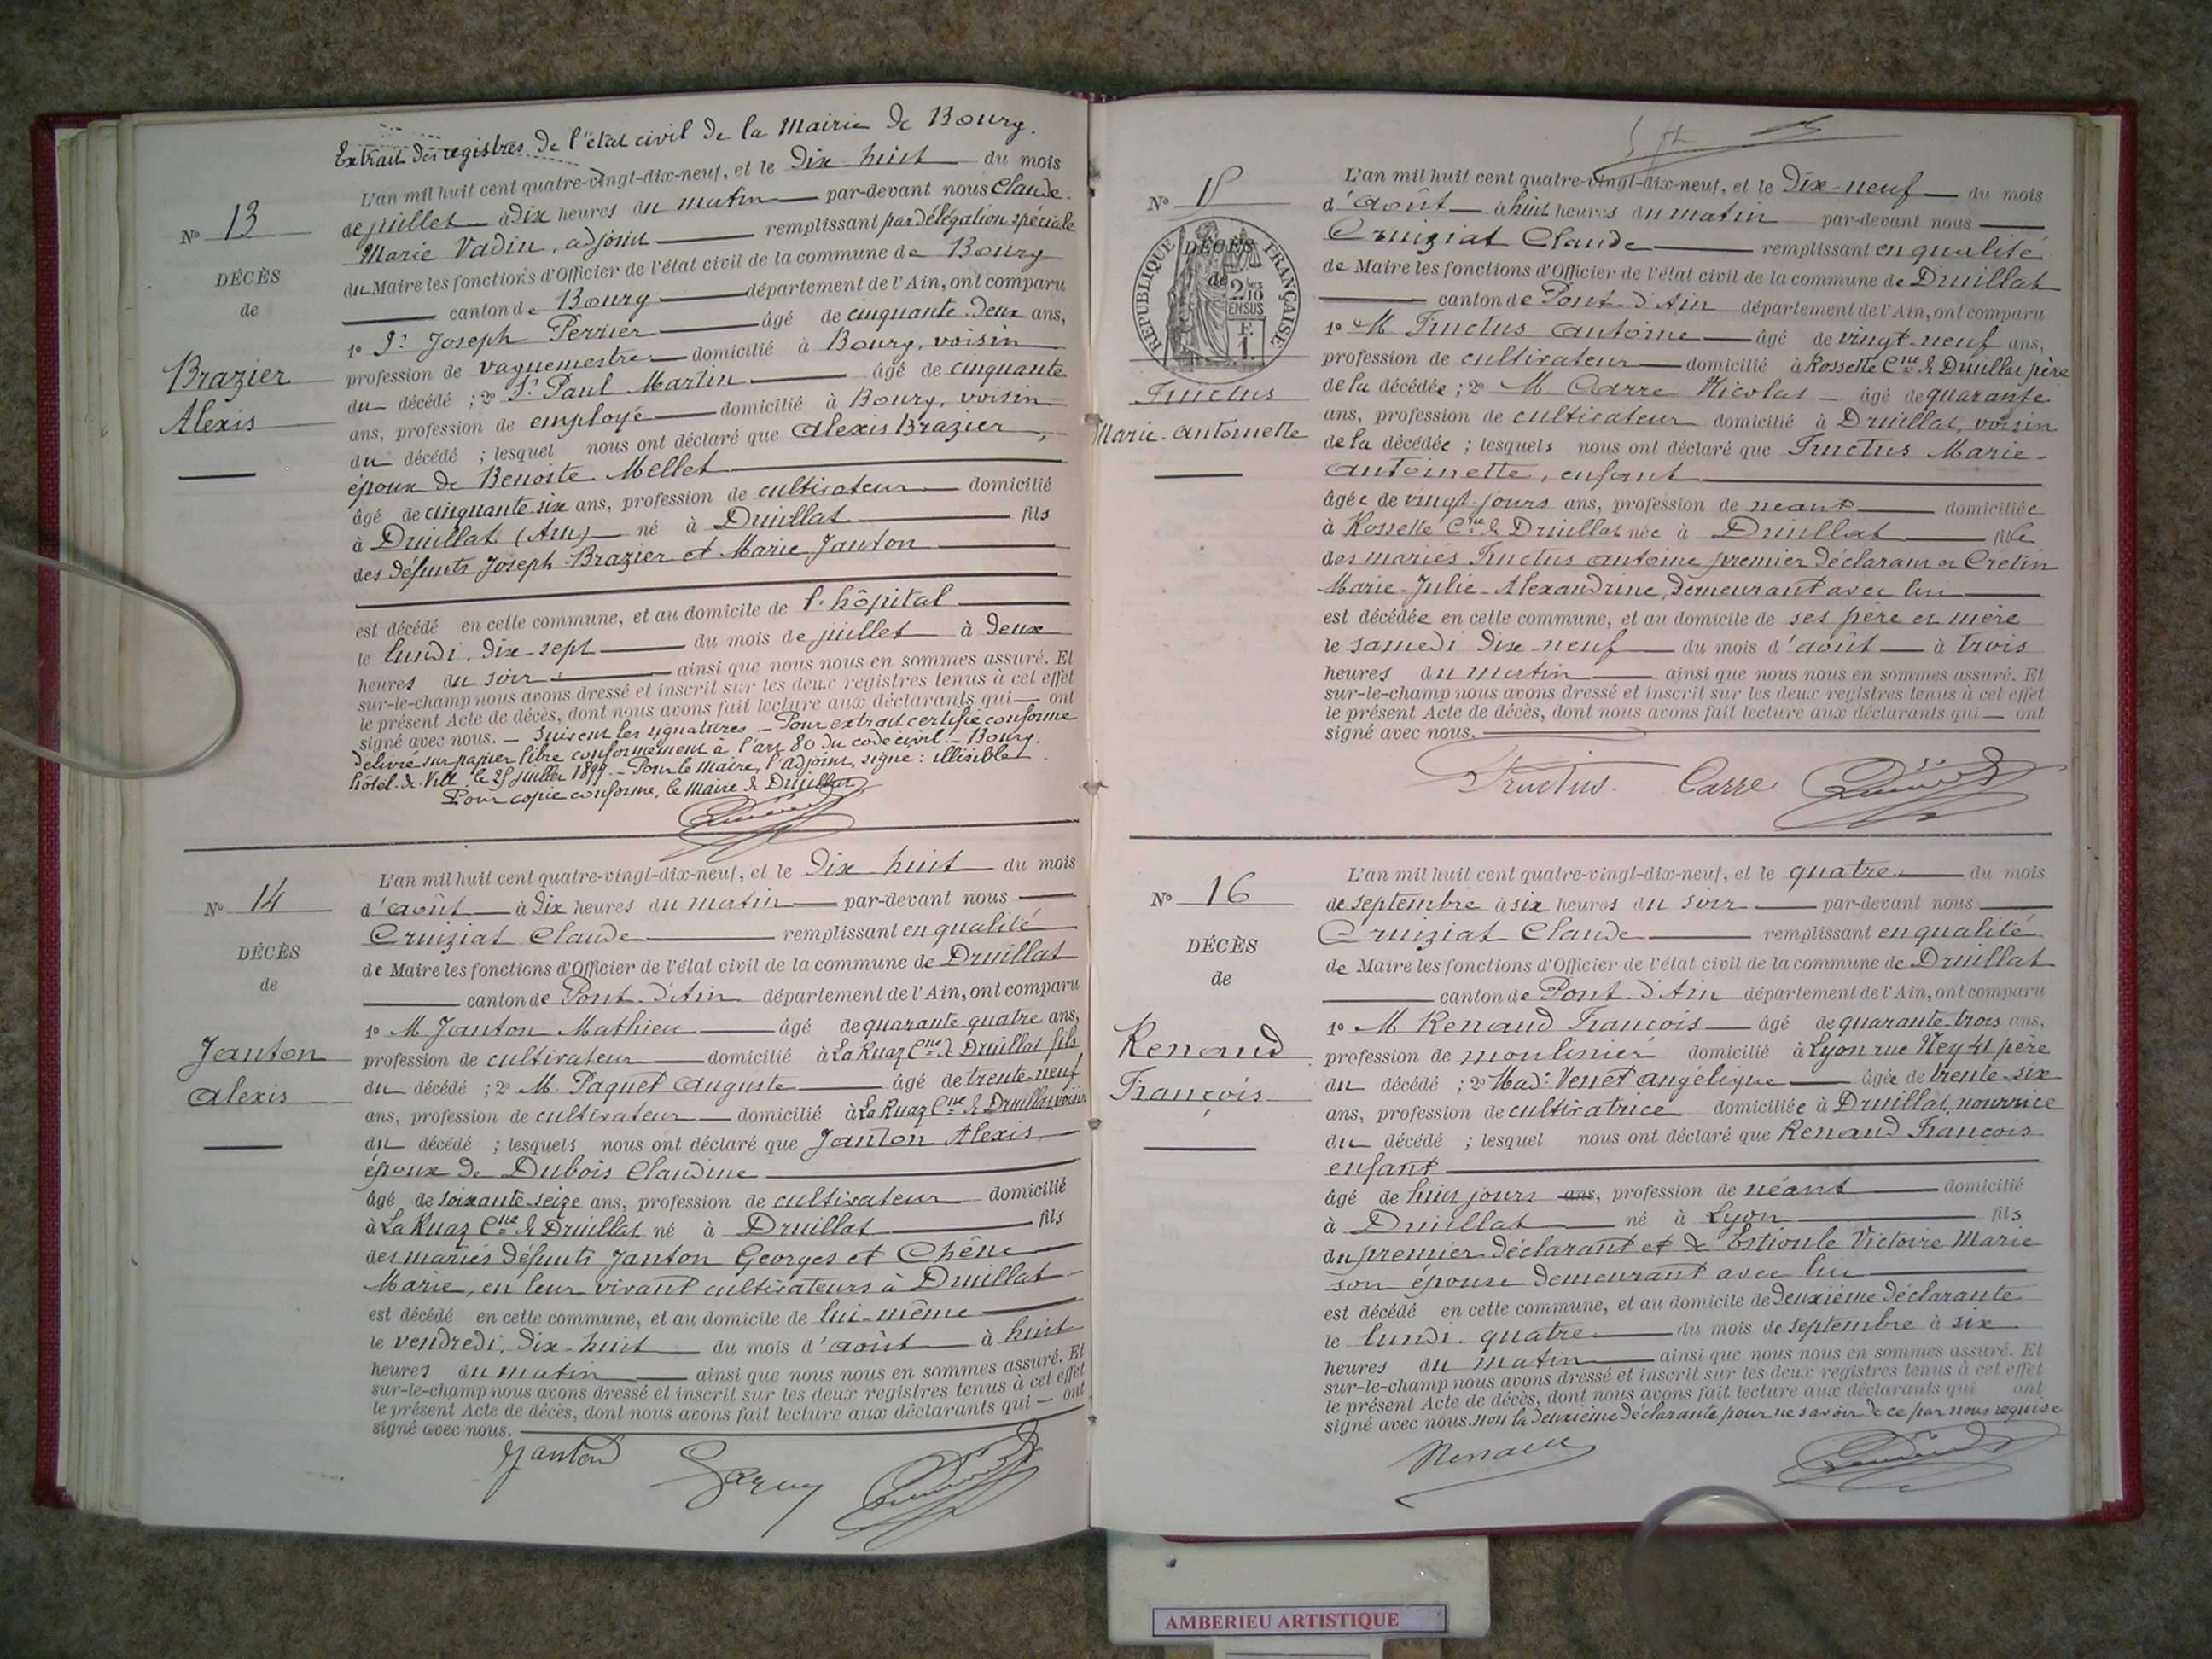 Extrait des registres de l'état civil de la Mairie de Bourg.
L'an mil huit cent quatre-vingt-dix-neuf, et le Dix huit du mois
de juillet à Dix heures du matin par-devant nous Claude
Marie Vadin, adjoint remplissant par Délégation spéciale
du Maire les fonctions d'Officier de l'état civil de la commune de Bourg
canton de Bourg département de l'Ain, ont comparu
1º Sr Joseph Perrier âgé de cinquante-deux ans,
profession de vaguemestre domicilié à Bourg, voisin
du décédé ; 2º Sr Paul Martin âgé de cinquante
ans, profession de employé domicilié à Bourg, voisin
du décédé ; lesquel nous ont déclaré que Alexis Brazier,
époux de Benoite Mellet
âgé de cinquante-six ans, profession de cultivateur domicilié
à Druillat (Ain) né à Druillat fils
des défunts Joseph Brazier et Marie Janton
est décédé en cette commune, et au domicile de l'hôpital
le lundi, Dix-sept du mois de juillet à Deux
heures du soir ainsi que nous nous en sommes assuré. Et
sur-le-champ nous avons dressé et inscrit sur les deux registres tenus à cet effet
le présent Acte de décès, dont nous avons fait lecture aux déclarants qui ont
signé avec nous. — Suivent les signatures — Pour extrait certifié conforme
délivré sur papier libre conformément à l'art 80 du code civil — Bourg.
hôtel-de-Ville, le juillet 1899 — Pour le maire, l'adjoint, signé : illisible
Pour copie conforme, le Maire de Druillat
Nº 13
DÉCÈS
de
Brazier
Alexis
Nº 14
DÉCÈS
de
Janton
Alexis
L'an mil huit cent quatre-vingt-dix-neuf, et le Dix huit du mois
d'août à Dix heures du matin par-devant nous
Cruiziat Claude remplissant en qualité
de Maire les fonctions d'Officier de l'état civil de la commune de Druillat
canton de Pont-d'Ain département de l'Ain, ont comparu
1º M Janton Mathieu âgé de quarante quatre ans,
profession de cultivateur domicilié à La Ruaz Cne de Druillat fils
du décédé ; 2º M. Paquet Auguste âgé de trente-neuf
ans, profession de cultivateur domicilié à La Ruaz Cne de Druillat, voisin
du décédé ; lesquels nous ont déclaré que Janton Alexis,
époux de Dubois Claudine
âgé de soixante-seize ans, profession de cultivateur domicilié
à La Ruaz Cne de Druillat né à Druillat fils
des mariés défunts Janton Georges et Chêne
Marie, en leur vivant cultivateurs à Druillat
est décédé en cette commune, et au domicile de lui-même
le vendredi, Dix-huit du mois d'août à huit
heures du matin ainsi que nous nous en sommes assuré. Et
sur-le-champ nous avons dressé et inscrit sur les deux registres tenus à cet effet
le présent Acte de décès, dont nous avons fait lecture aux déclarants qui — ont
signé avec nous.
Janton
Nº 15
DÉCÈS
de
RÉPUBLIQUE FRANÇAISE
2/10 EN SUS
F. 1.
Fructus
Marie-Antoinette
L'an mil huit cent quatre-vingt-dix-neuf, et le Dix-neuf du mois
d'août à huit heures du matin par-devant nous
Cruiziat Claude remplissant en qualité
de Maire les fonctions d'Officier de l'état civil de la commune de Druillat
canton de Pont-d'Ain département de l'Ain, ont comparu
1º M Fructus Antoine âgé de vingt-neuf ans,
profession de cultivateur domicilié à Rossette Cne de Druillat père
de la décédée ; 2º M. Carre Nicolas âgé de quarante
ans, profession de cultivateur domicilié à Druillat, voisin
de la décédée ; lesquels nous ont déclaré que Fructus Marie-
Antoinette, enfant
âgée de vingt-jours ans, profession de néant domiciliée
à Rossette Cne de Druillat née à Druillat fille
des mariés Fructus Antoine premier déclarant et Crétin
Marie-Julie-Alexandrine, demeurant avec lui
est décédée en cette commune, et au domicile de ses père et mère
le samedi Dix-neuf du mois d'août à trois
heures du matin ainsi que nous nous en sommes assuré. Et
sur-le-champ nous avons dressé et inscrit sur les deux registres tenus à cet effet
le présent Acte de décès, dont nous avons fait lecture aux déclarants qui — ont
signé avec nous.
Fructus. Carre
Nº 16
DÉCÈS
de
Renaud
François
L'an mil huit cent quatre-vingt-dix-neuf, et le quatre du mois
de septembre à six heures du soir par-devant nous
Cruiziat Claude remplissant en qualité
de Maire les fonctions d'Officier de l'état civil de la commune de Druillat
canton de Pont-d'Ain département de l'Ain, ont comparu
1º M Renaud François âgé de quarante-trois ans,
profession de moulinier domicilié à Lyon rue Ney 41 père
du décédé ; 2º Made Venet Angélique âgée de trente-six
ans, profession de cultivatrice domiciliée à Druillat, nourrice
du décédé ; lesquel nous ont déclaré que Renaud François
enfant
âgé de huit jours ans, profession de néant domicilié
à Druillat né à Lyon fils
du premier déclarant et de Estioule Victoire Marie
son épouse demeurant avec lui
est décédé en cette commune, et au domicile de Deuxième déclarante
le lundi quatre du mois de septembre à six
heures du matin ainsi que nous nous en sommes assuré. Et
sur-le-champ nous avons dressé et inscrit sur les deux registres tenus à cet effet
le présent Acte de décès, dont nous avons fait lecture aux déclarants qui ont
signé avec nous. non la deuxième déclarante pour ne savoir de ce par nous requise
Renaud
AMBERIEU ARTISTIQUE